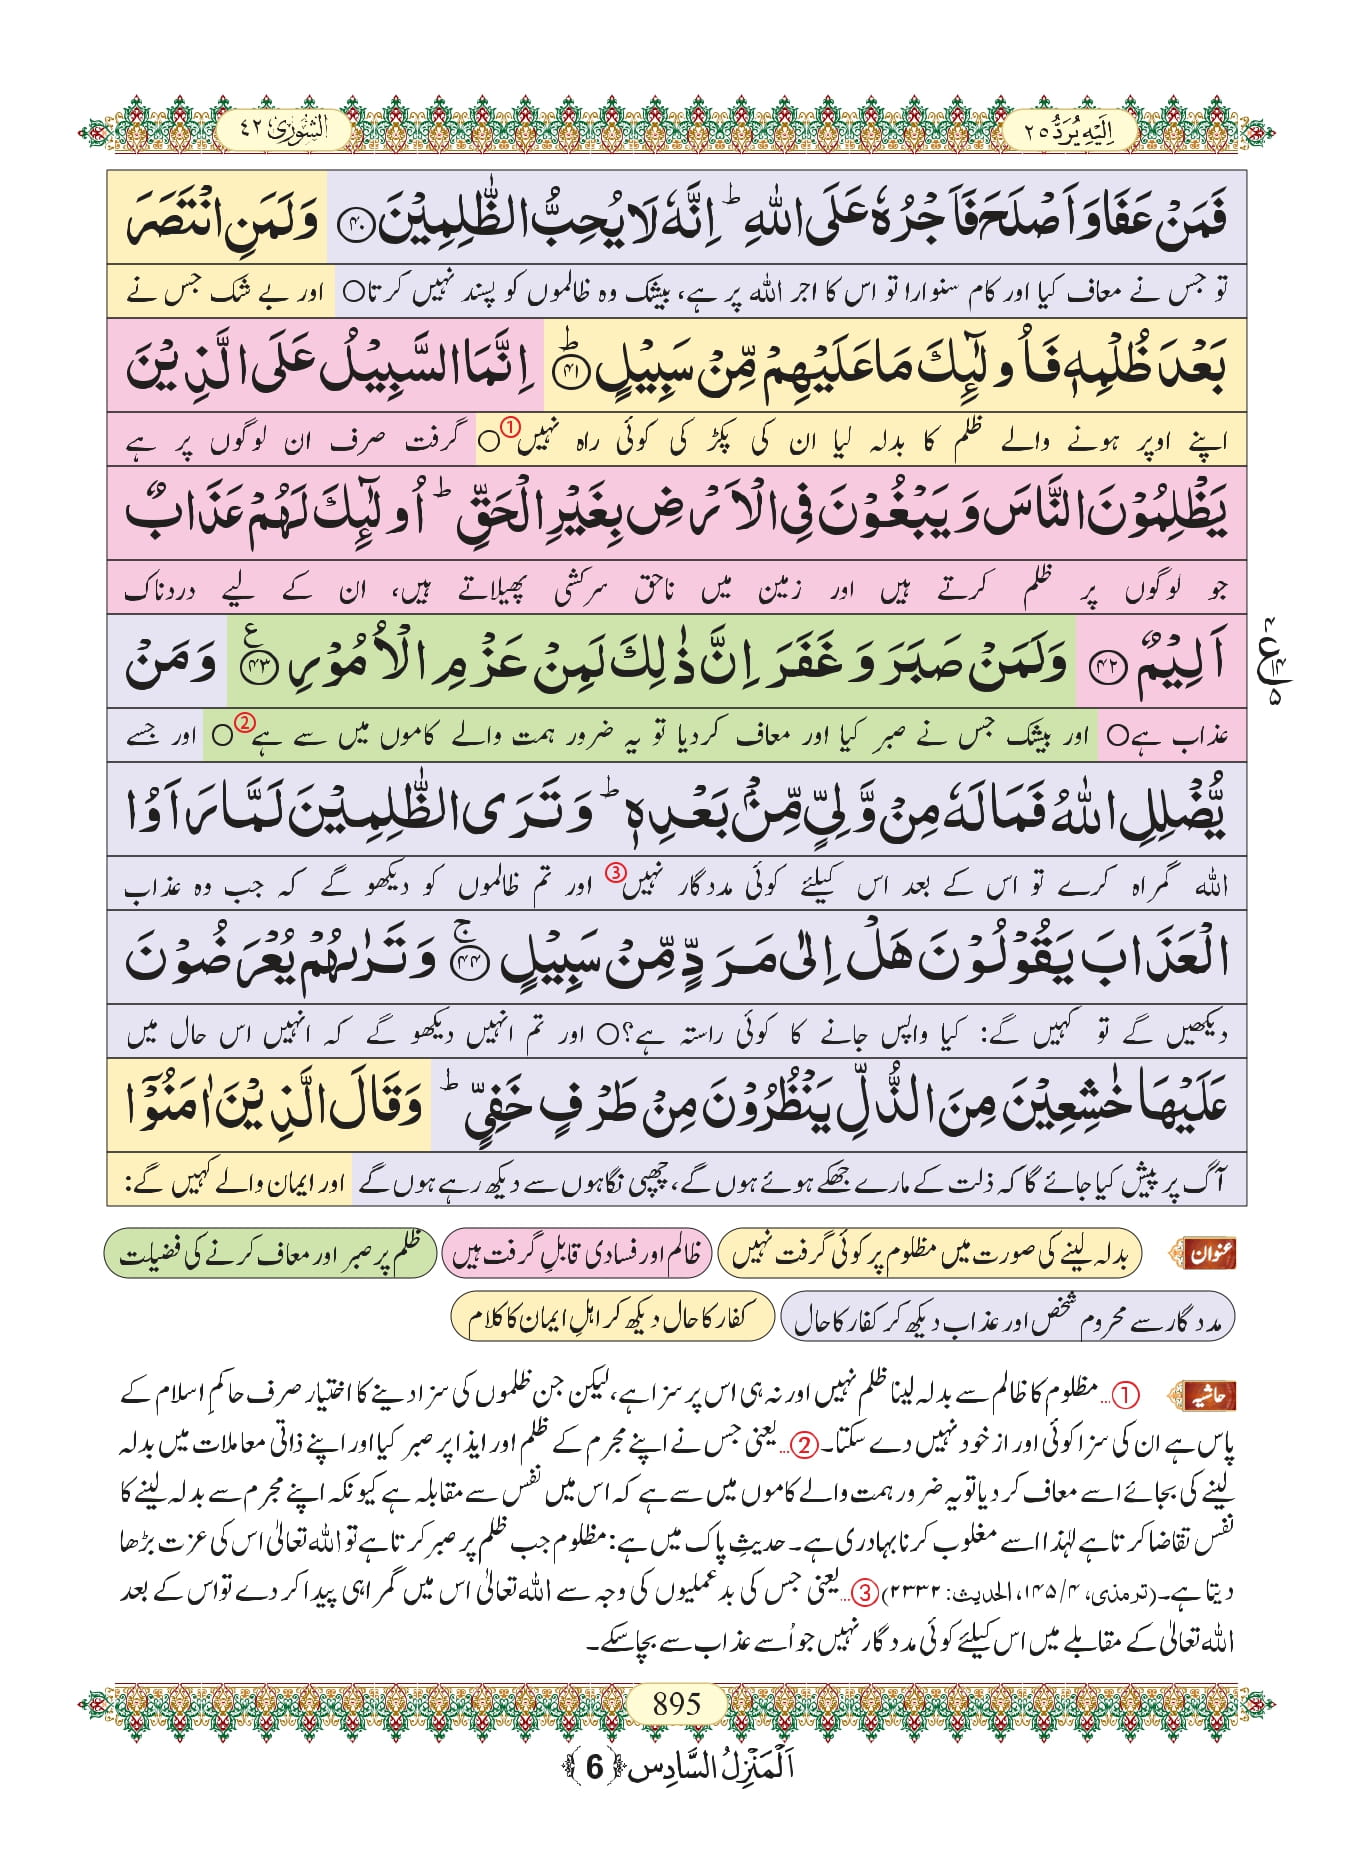 اِلَیْهِ یُرَدُّ ۲۵
الشُّوْرٰی ۴۲
فَمَنْ عَفَا وَ اَصْلَحَ فَاَجْرُهٗ عَلَى اللّٰهِؕ اِنَّهٗ لَا یُحِبُّ الظّٰلِمِیْنَ ﴿۴۰﴾ وَ لَمَنِ انْتَصَرَ
تو جس نے معاف کیا اور کام سنوارا تو اس کا اجر اللہ پر ہے، بیشک وہ ظالموں کو پسند نہیں کرتا○ اور بے شک جس نے
بَعْدَ ظُلْمِهٖ فَاُولٰٓىٕكَ مَا عَلَیْهِمْ مِّنْ سَبِیْلٍؕ ﴿۴۱﴾ اِنَّمَا السَّبِیْلُ عَلَى الَّذِیْنَ
اپنے اوپر ہونے والے ظلم کا بدلہ لیا ان کی پکڑ کی کوئی راہ نہیں①○ گرفت صرف ان لوگوں پر ہے
یَظْلِمُوْنَ النَّاسَ وَ یَبْغُوْنَ فِی الْاَرْضِ بِغَیْرِ الْحَقِّؕ اُولٰٓىٕكَ لَهُمْ عَذَابٌ
جو لوگوں پر ظلم کرتے ہیں اور زمین میں ناحق سرکشی پھیلاتے ہیں، ان کے لیے دردناک
اَلِیْمٌ ﴿۴۲﴾ وَ لَمَنْ صَبَرَ وَ غَفَرَ اِنَّ ذٰلِكَ لَمِنْ عَزْمِ الْاُمُوْرِ ﴿۴۳﴾ۧ وَ مَنْ
۴ ع ۱۴ ۵
عذاب ہے○ اور بیشک جس نے صبر کیا اور معاف کردیا تو یہ ضرور ہمت والے کاموں میں سے ہے②○ اور جسے
یُّضْلِلِ اللّٰهُ فَمَا لَهٗ مِنْ وَّلِیٍّ مِّنْۢ بَعْدِهٖؕ وَ تَرَى الظّٰلِمِیْنَ لَمَّا رَاَوُا
اللہ گمراہ کرے تو اس کے بعد اس کیلئے کوئی مددگار نہیں③ اور تم ظالموں کو دیکھو گے کہ جب وہ عذاب
الْعَذَابَ یَقُوْلُوْنَ هَلْ اِلٰى مَرَدٍّ مِّنْ سَبِیْلٍۚ ﴿۴۴﴾ وَ تَرٰىهُمْ یُعْرَضُوْنَ
دیکھیں گے تو کہیں گے: کیا واپس جانے کا کوئی راستہ ہے؟○ اور تم انہیں دیکھو گے کہ انہیں اس حال میں
عَلَیْهَا خٰشِعِیْنَ مِنَ الذُّلِّ یَنْظُرُوْنَ مِنْ طَرْفٍ خَفِیٍّؕ وَ قَالَ الَّذِیْنَ اٰمَنُوْۤا
آگ پر پیش کیا جائے گا کہ ذلت کے مارے جھکے ہوئے ہوں گے، چھپی نگاہوں سے دیکھ رہے ہوں گے اور ایمان والے کہیں گے:
عنوان بدلہ لینے کی صورت میں مظلوم پر کوئی گرفت نہیں ظالم اور فسادی قابلِ گرفت ہیں ظلم پر صبر اور معاف کرنے کی فضیلت
مددگار سے محروم شخص اور عذاب دیکھ کر کفار کا حال کفار کا حال دیکھ کر اہلِ ایمان کا کلام
حاشیہ ①... مظلوم کا ظالم سے بدلہ لینا ظلم نہیں اور نہ ہی اس پر سزا ہے، لیکن جن ظلموں کی سزا دینے کا اختیار صرف حاکمِ اسلام کے
پاس ہے ان کی سزا کوئی اور از خود نہیں دے سکتا۔ ②... یعنی جس نے اپنے مجرم کے ظلم اور ایذا پر صبر کیا اور اپنے ذاتی معاملات میں بدلہ
لینے کی بجائے اسے معاف کر دیا تو یہ ضرور ہمت والے کاموں میں سے ہے کہ اس میں نفس سے مقابلہ ہے کیونکہ اپنے مجرم سے بدلہ لینے کا
نفس تقاضا کرتا ہے لہٰذا اسے مغلوب کرنا بہادری ہے۔ حدیثِ پاک میں ہے: مظلوم جب ظلم پر صبر کرتا ہے تو اللہ تعالٰی اس کی عزت بڑھا
دیتا ہے۔ (ترمذی، ۴/۱۴۵، الحدیث: ۲۳۳۲) ③... یعنی جس کی بدعملیوں کی وجہ سے اللہ تعالٰی اس میں گمراہی پیدا کر دے تو اس کے بعد
اللہ تعالٰی کے مقابلے میں اس کیلئے کوئی مددگار نہیں جو اُسے عذاب سے بچا سکے۔
895
اَلْمَنْزِلُ السَّادِس ﴿6﴾